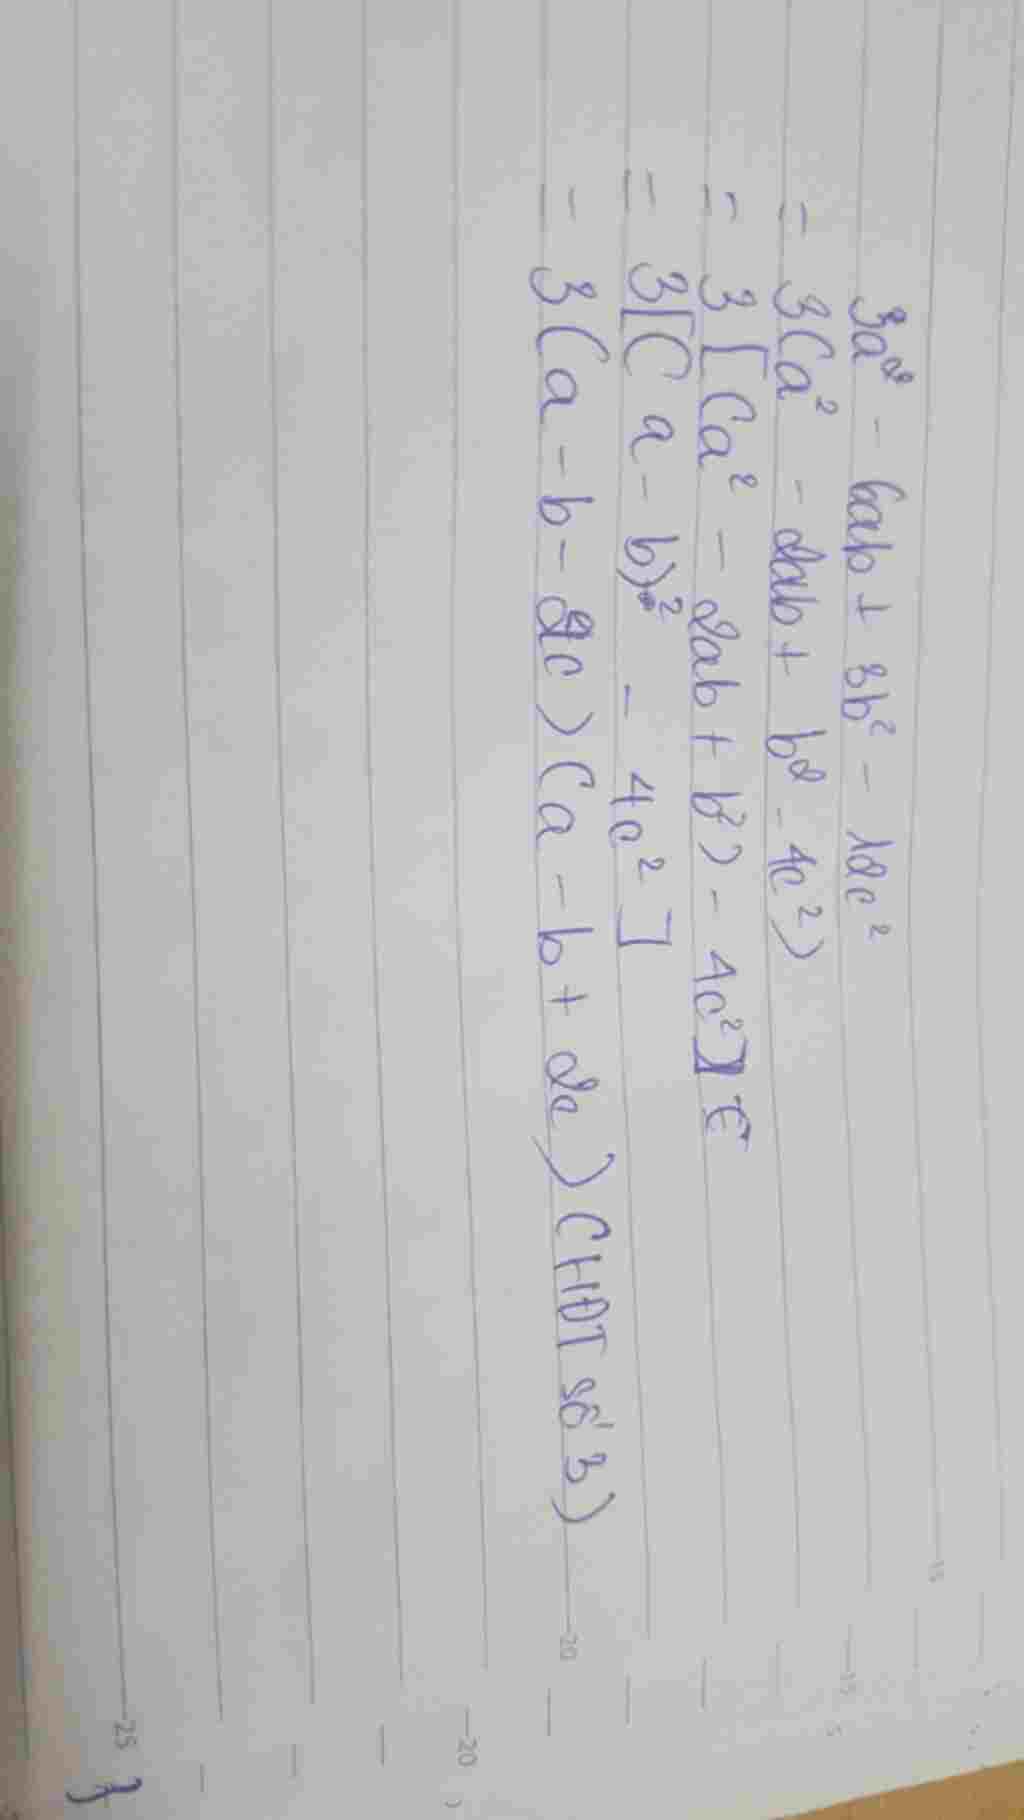 3a² - 6ab + 3b² - 12c²
= 3(a² - 2ab + b² - 4c²)
= 3[(a² - 2ab + b²) - 4c²]
= 3[(a - b)² - 4c²]
= 3(a - b - 2c)(a - b + 2c) (HĐT số 3)
15
15
20
20
25